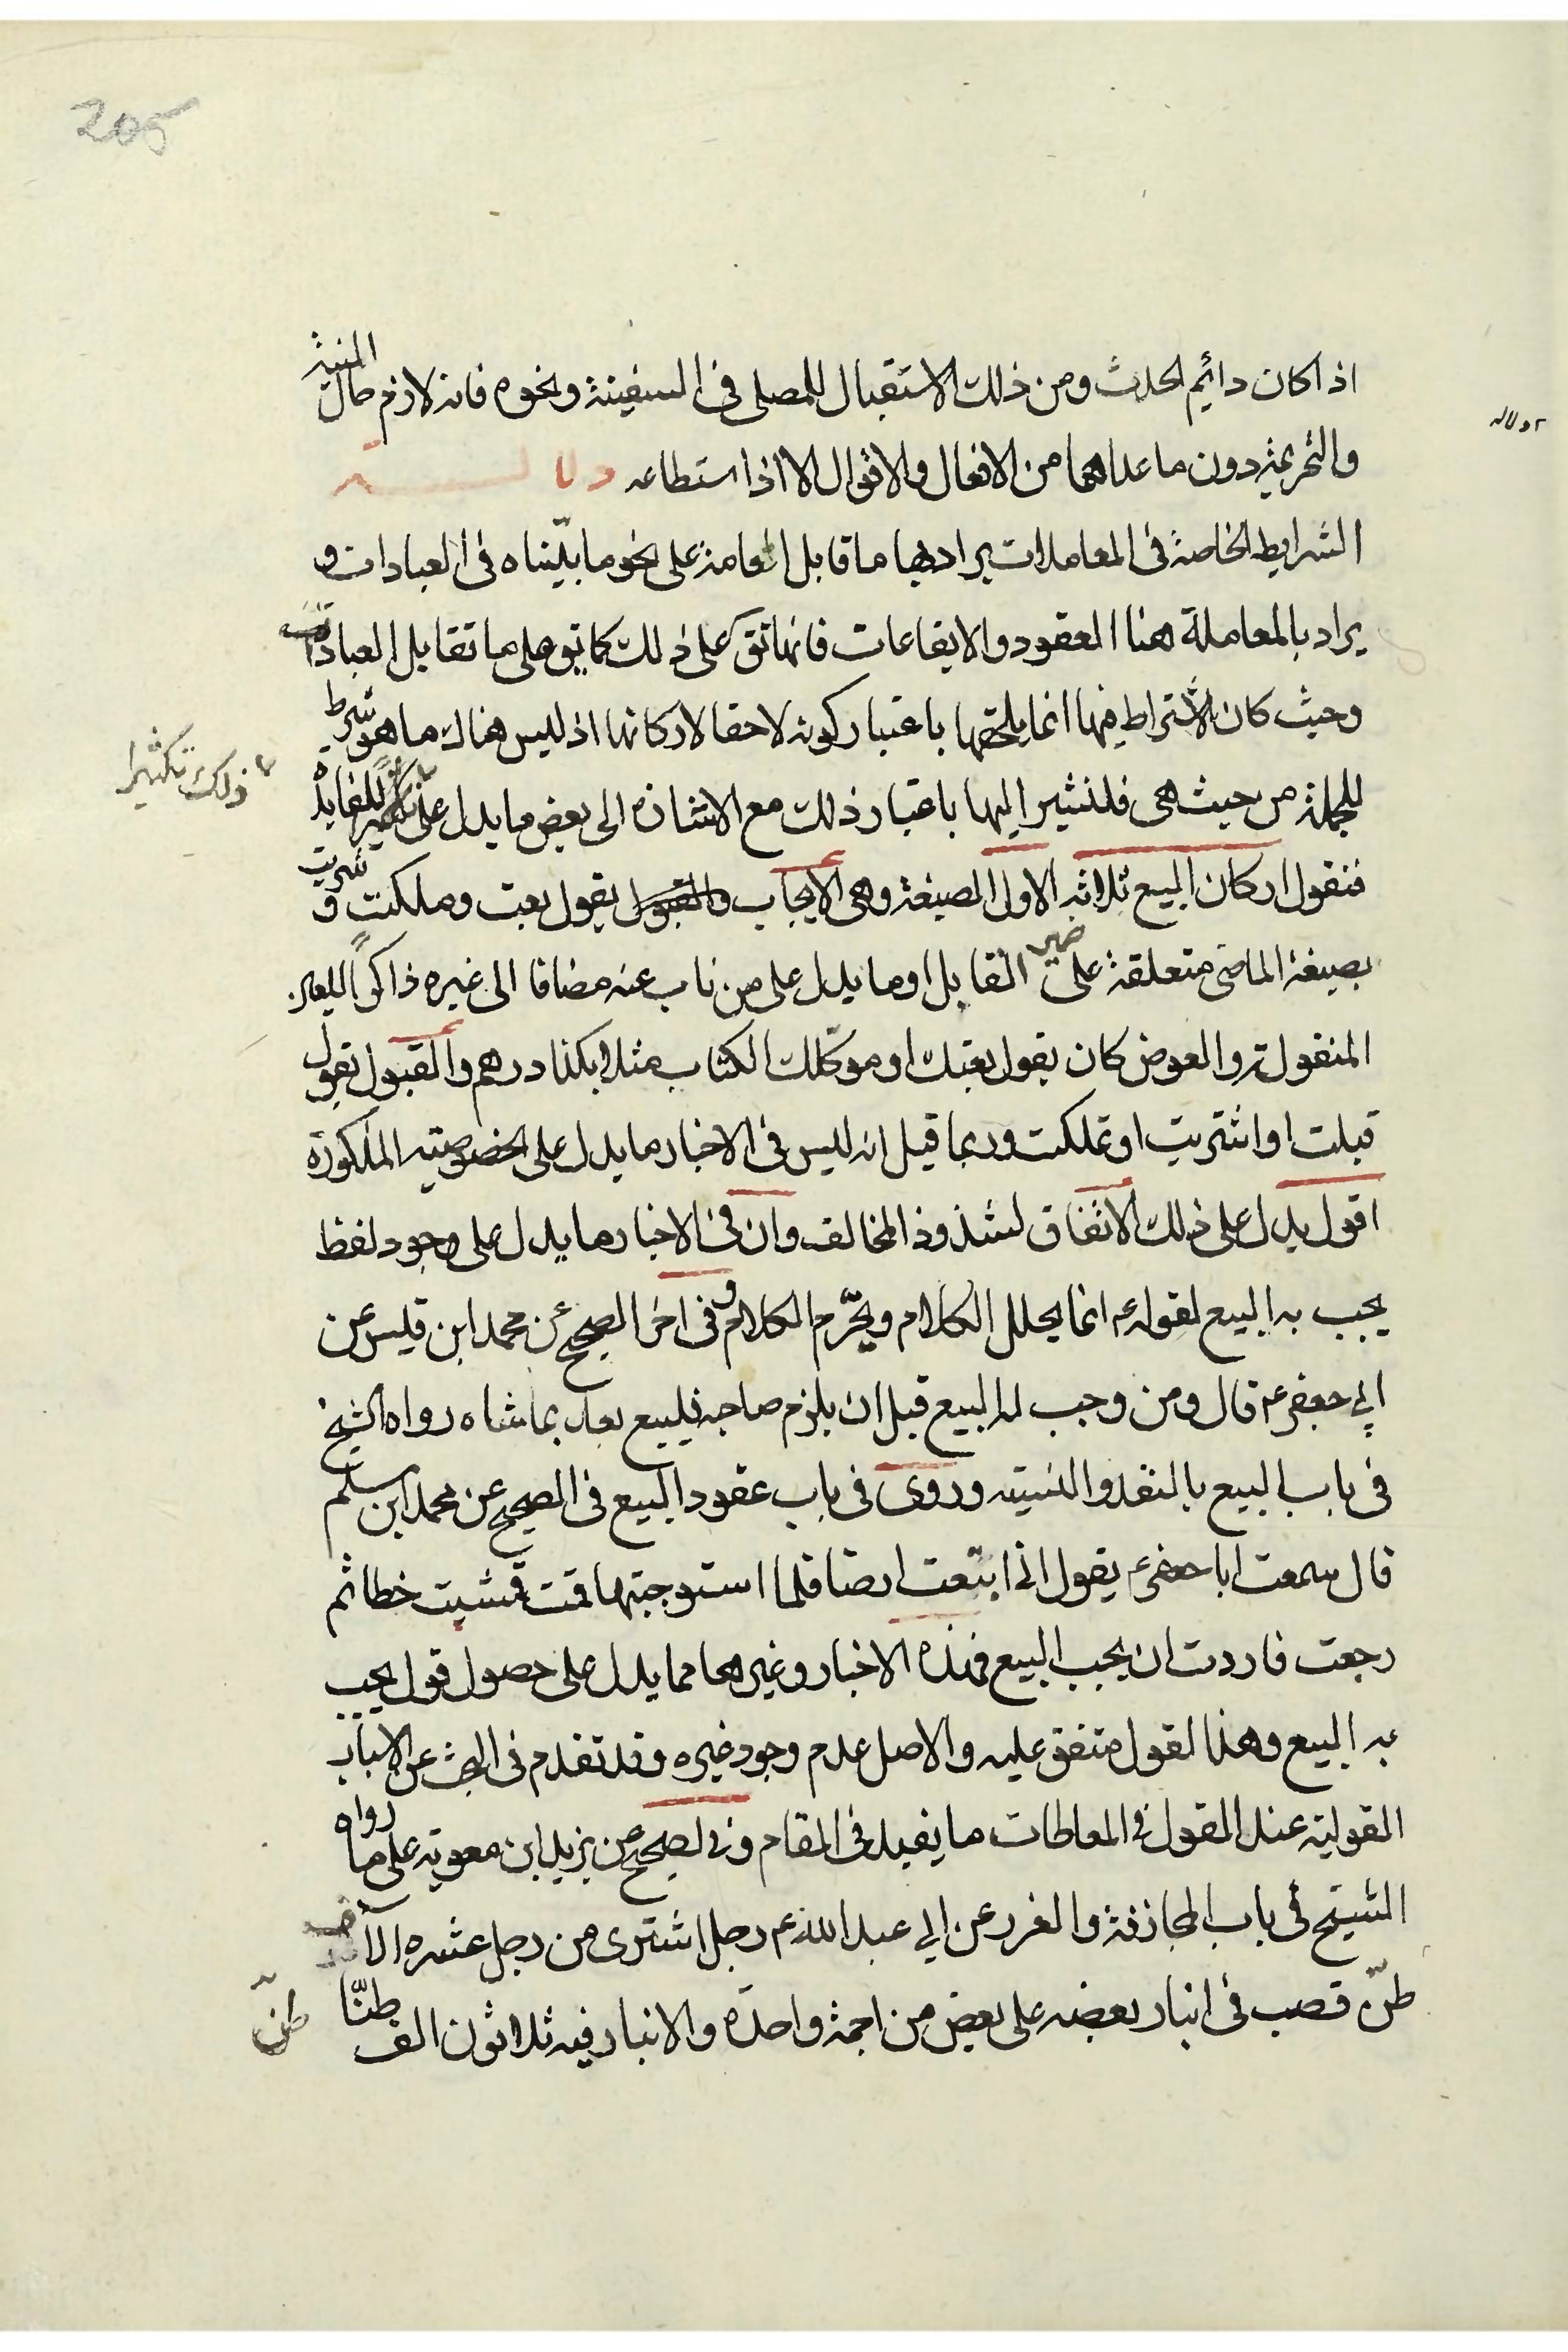 205
اذا كان دائم الحدث ومن ذلك الاستقبال للمصلى فى السفينة ونحوه فانه لازم حال النية
والتحريمة دون ما عداهما من الافعال والاقوال الا اذا استطاعه دلالـــــة
دلاله
الشرايط الخاصة فى المعاملات يراد بها ما قابل العامة على نحو ما بيّناه فى العبادات و
يراد بالمعاملة هنا العقود والايقاعات فانها تق على ذلك كما تق على ما تقابل العبادات
وحيث كان الاشتراط فيها انما يلحقها باعتبار كونه لاحقا لاركانها اذ ليس هناك ما هو شرط
للجملة من حيث هى فلنشير اليها باعتبار ذلك مع الاشارة الى بعض ما يدل على تكثيرا للفايدة
ذلك تكثيرا
فنقول اركان البيع ثلاثه الاول الصيغة وهى الايجاب والقبول يقول بعت وملكت و شريت
بصيغة الماضى متعلقة على ضمير القابل او ما يدل على من ناب عنه مضافا الى غيره ذاكرًا للعين
المنقولة والعوض كان يقول بعتك او موكّلك الكتاب مثلا بكذا درهم والقبول تقول
قبلت او اشتريت او تملكت وربما قيل انه ليس فى الاخبار ما يدل على الخصوصية المذكورة
اقول يدل على ذلك الاتفاق لشذوذ المخالف وان فى الاخبار ما يدل على وجود لفظ
يجب به البيع لقوله ع انما يحلل الكلام ويحرّم الكلام وفى اخر الصحيح عن محمد ابن قيس عن
ابي جعفر ع قال ومن وجب له البيع قبل ان يلزم صاحبه فليبيع بعد بما شاه رواه الشيخ
فى باب البيع بالنقد والنسيّه وروى فى باب عقود البيع فى الصحيح عن محمد ابن مسلم
قال سمعت ابا جعفر ع يقول انى ابتعت ارضا فلما استوجبتها قمت فمشيت خطا ثم
رجعت فاردت ان يجب البيع فهذه الاخبار وغيرها مما يدل على حصول قول يجب
به البيع وهذا القول متفق عليه والاصل عدم وجود غيره وقد تقدم فى البحث عن الاسباب
القوليّه عند القول فى المعاطات ما يفيد فى المقام وفى الصحيح عن بزيد ابن معوية على ما رواه
الشيخ فى باب المجازفة والغرر عن ابي عبد الله ع رجل اشترى من رجل عشره الآف
طنّ قصب فى انبار بعضه على بعض من اجمة واحدة والانبار فيه ثلاثون الف طنّا
طنّ